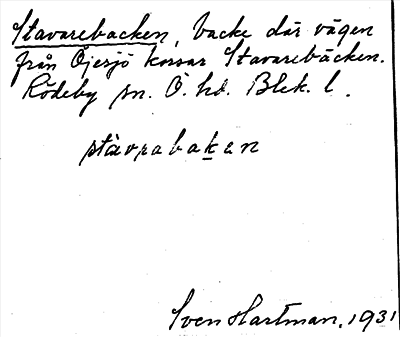 Stavarebacken, backe där vägen
från Öjesjö korsar Stavarebäcken.
Rödeby sn. Ö. hd. Blek. l.
stàvrabaken
Sven Hartman, 1931